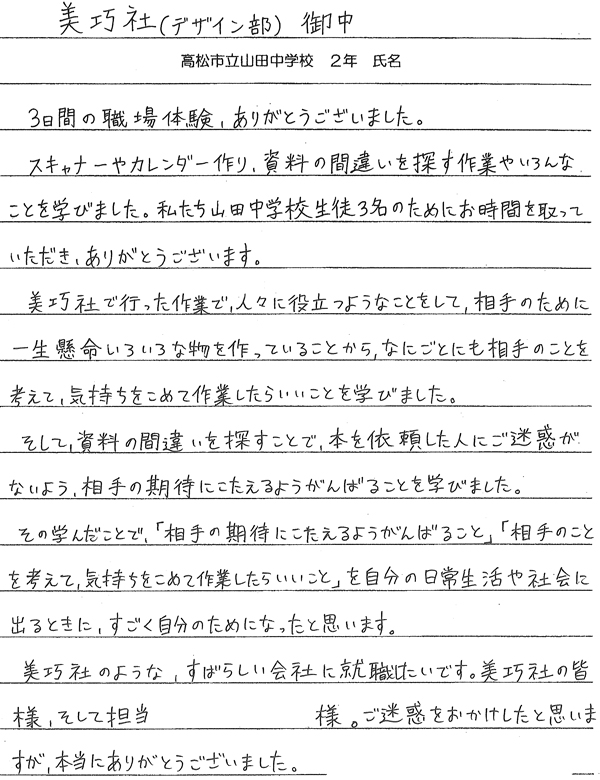 美巧社(デザイン部) 御中
高松市立山田中学校 2年 氏名
3日間の職場体験、ありがとうございました。
スキャナーやカレンダー作り、資料の間違いを探す作業やいろんな
ことを学びました。私たち山田中学校生徒3名のためにお時間を取って
いただき、ありがとうございます。
美巧社で行った作業で、人々に役立つようなことをして、相手のために
一生懸命いろいろな物を作っていることから、なにごとにも相手のことを
考えて、気持ちをこめて作業したらいいことを学びました。
そして、資料の間違いを探すことで、本を依頼した人にご迷惑が
ないよう、相手の期待にこたえるようがんばることを学びました。
その学んだことで、「相手の期待にこたえるようがんばること」「相手のこと
を考えて、気持ちをこめて作業したらいいこと」を自分の日常生活や社会に
出るときに、すごく自分のためになったと思います。
美巧社のような、すばらしい会社に就職したいです。美巧社の皆
様、そして担当 様。ご迷惑をおかけしたと思いま
すが、本当にありがとうございました。